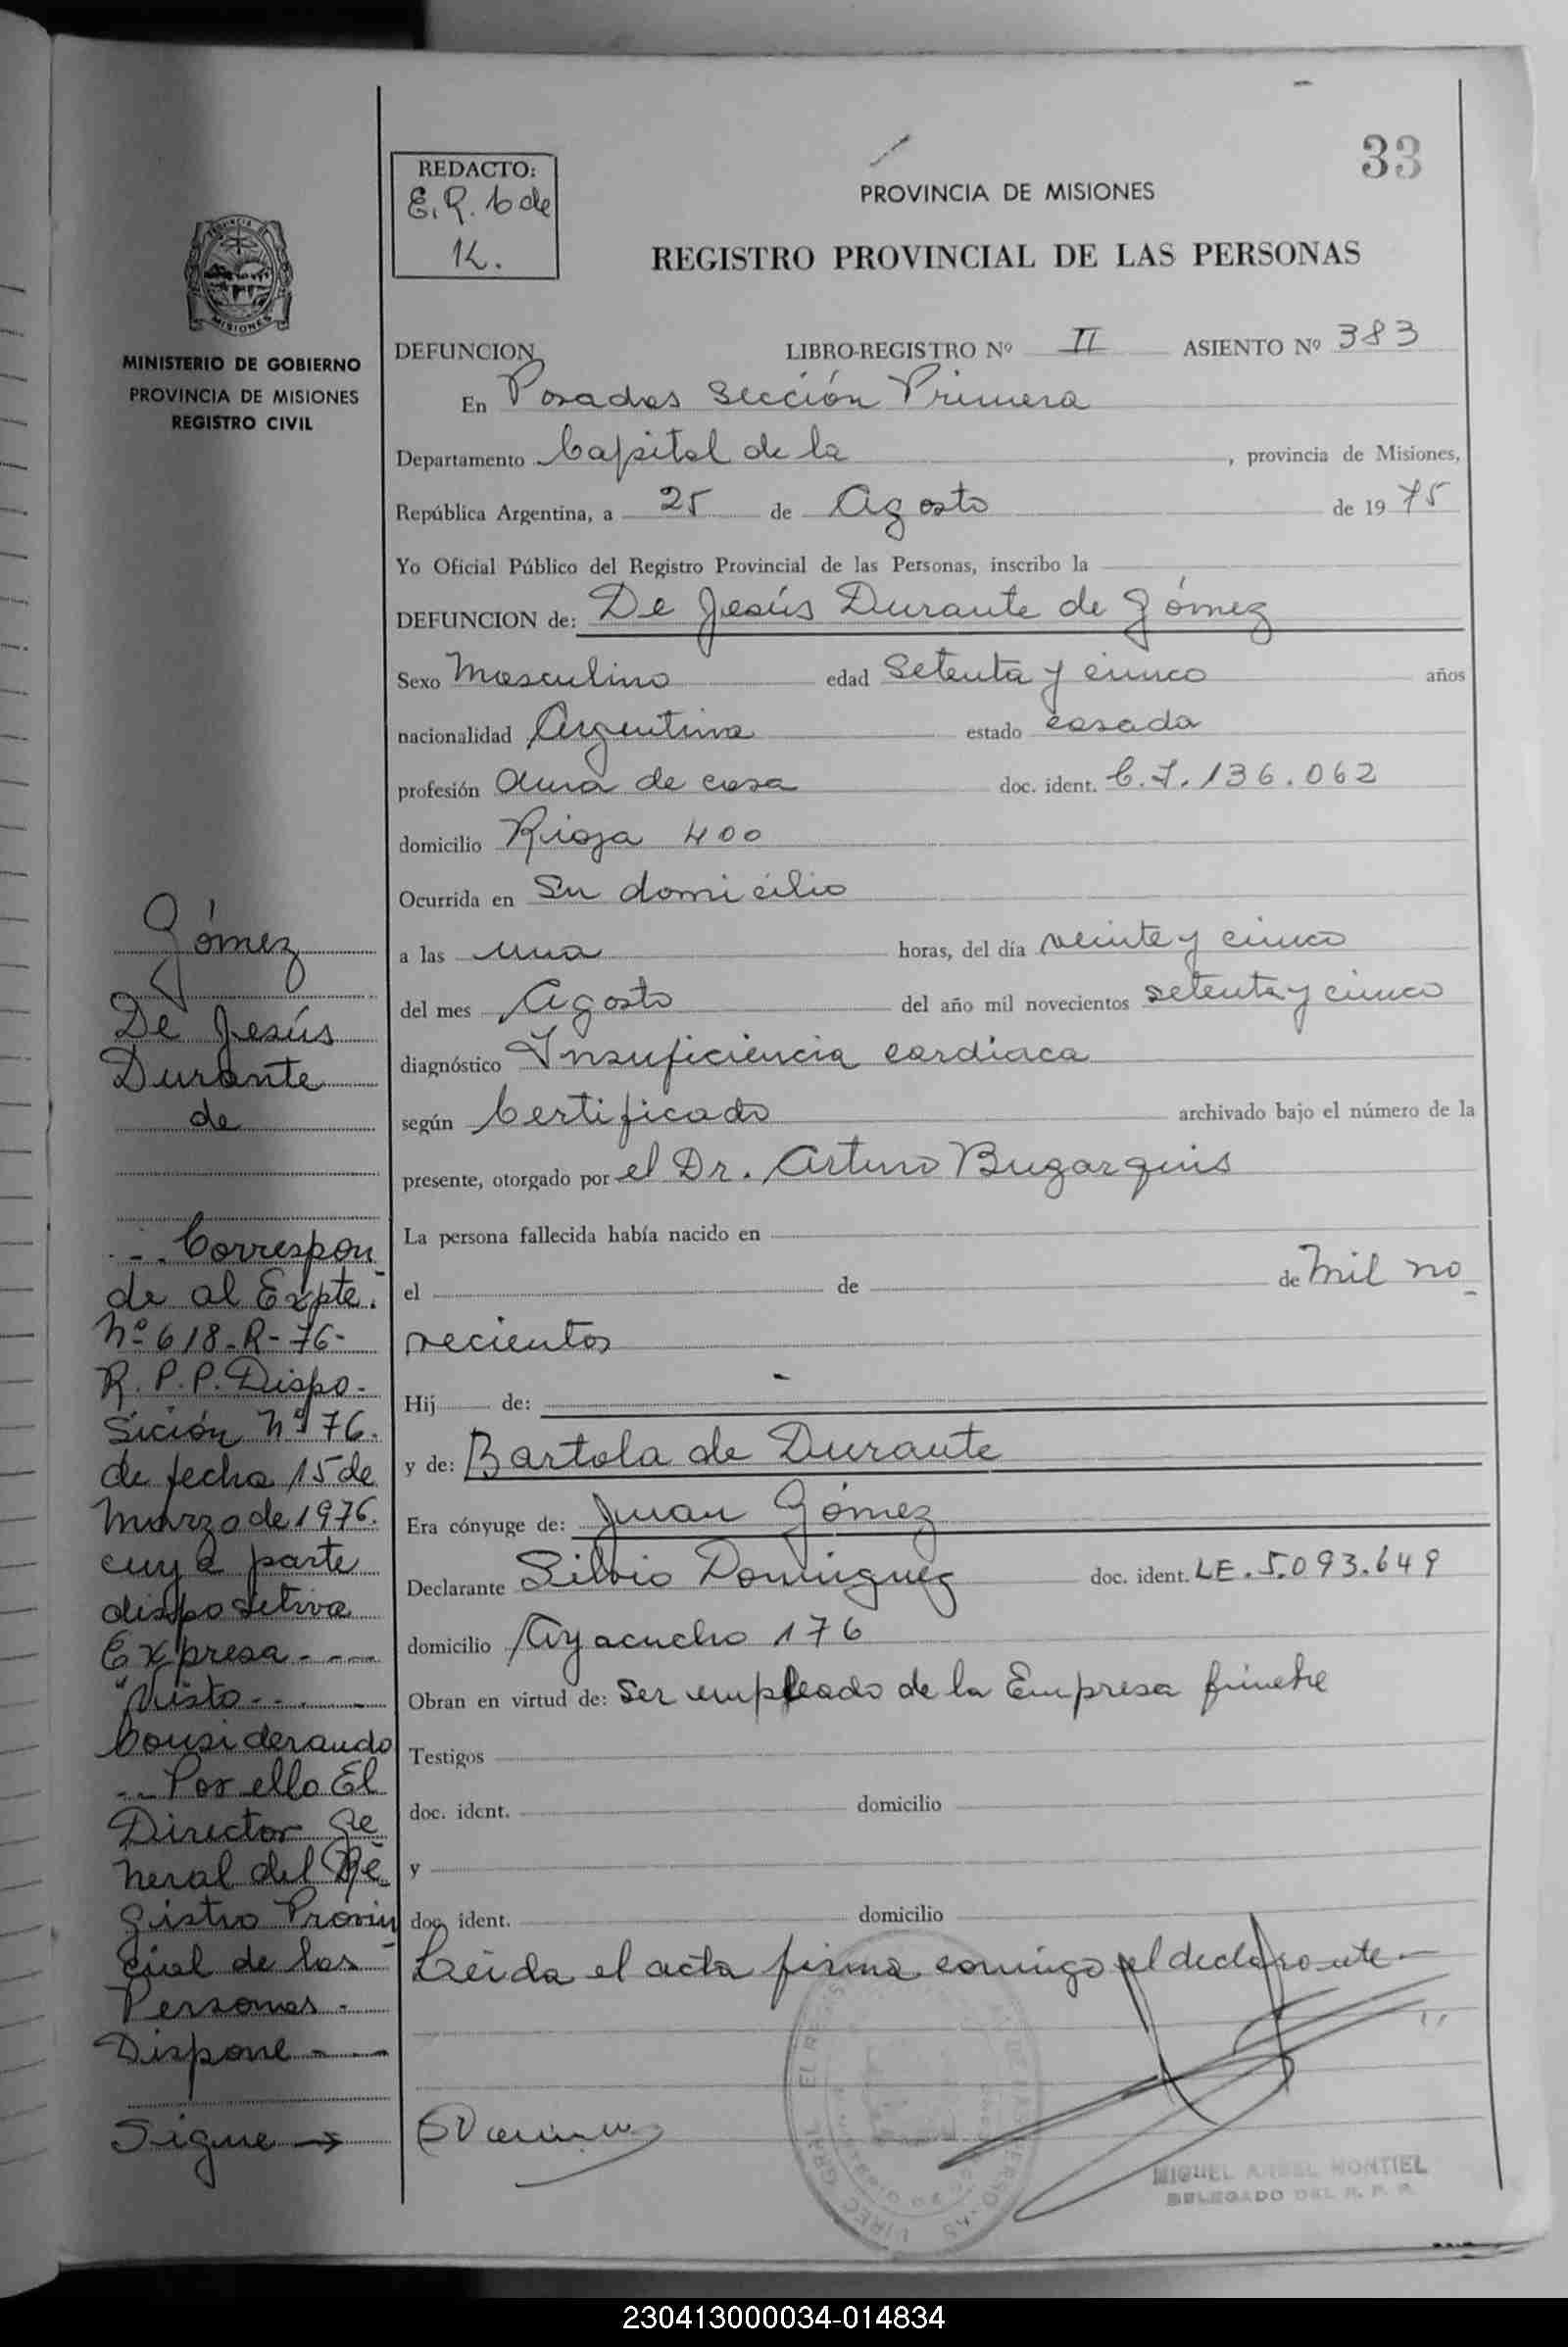 33
REDACTO:
E. R. b de
K.
PROVINCIA DE MISIONES
REGISTRO PROVINCIAL DE LAS PERSONAS
MINISTERIO DE GOBIERNO
PROVINCIA DE MISIONES
REGISTRO CIVIL
Gómez
De Jesús
Durante
de
-. Correspon
de al Expte.
Nº 618-R-76-
R. P. P. Dispo-
sición Nº 76.
de fecha 15 de
Marzo de 1976.
cuya parte
dispositiva
Expresa - - -
"Visto - - -
Considerando
-- Por ello El
Director Ge
neral del Re
gistro Provin
cial de las
Personas -
Dispone - - -
Sigue →
DEFUNCION LIBRO-REGISTRO Nº II ASIENTO Nº 383
En Posadas Sección Primera
Departamento Capital de la , provincia de Misiones,
República Argentina, a 25 de Agosto de 1975
Yo Oficial Público del Registro Provincial de las Personas, inscribo la
DEFUNCION de: De Jesús Durante de Gómez
Sexo Masculino edad Setenta y cinco años
nacionalidad Argentina estado casada
profesión Ama de casa doc. ident. C.I. 136.062
domicilio Rioja 400
Ocurrida en Su domicilio
a las una horas, del día veinte y cinco
del mes Agosto del año mil novecientos setenta y cinco
diagnóstico Insuficiencia cardiaca
según Certificado archivado bajo el número de la
presente, otorgado por el Dr. Arturo Bugarquis
La persona fallecida había nacido en
el de de Mil no
vecientos
Hij de:
y de: Bartola de Durante
Era cónyuge de: Juan Gómez
Declarante Silvio Dominguez doc. ident. LE. 5.093.649
domicilio Ayacucho 176
Obran en virtud de: Ser empleado de la Empresa fúnebre
Testigos
doc. ident. domicilio
y
doc. ident. domicilio
Leida el acta firma conmigo el declarante -
MIGUEL ANGEL MONTIEL
DELEGADO DEL R. P. P.
230413000034-014834